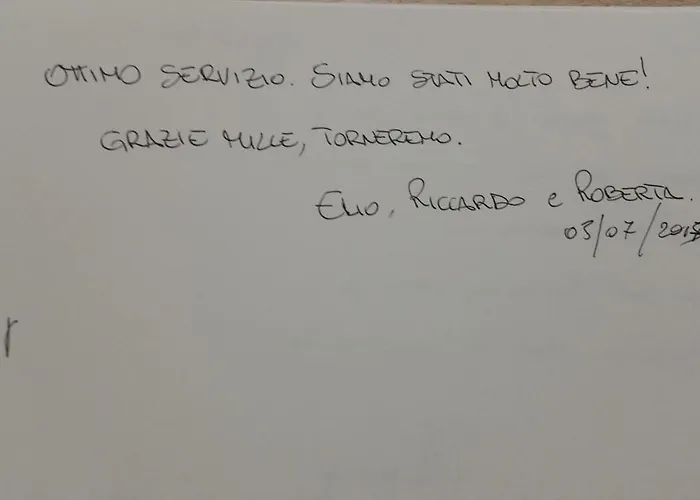 OTTIMO SERVIZIO. SIAMO STATI MOLTO BENE!
GRAZIE MILLE, TORNEREMO.
ELIO, RICCARDO e ROBERTA.
03/07/